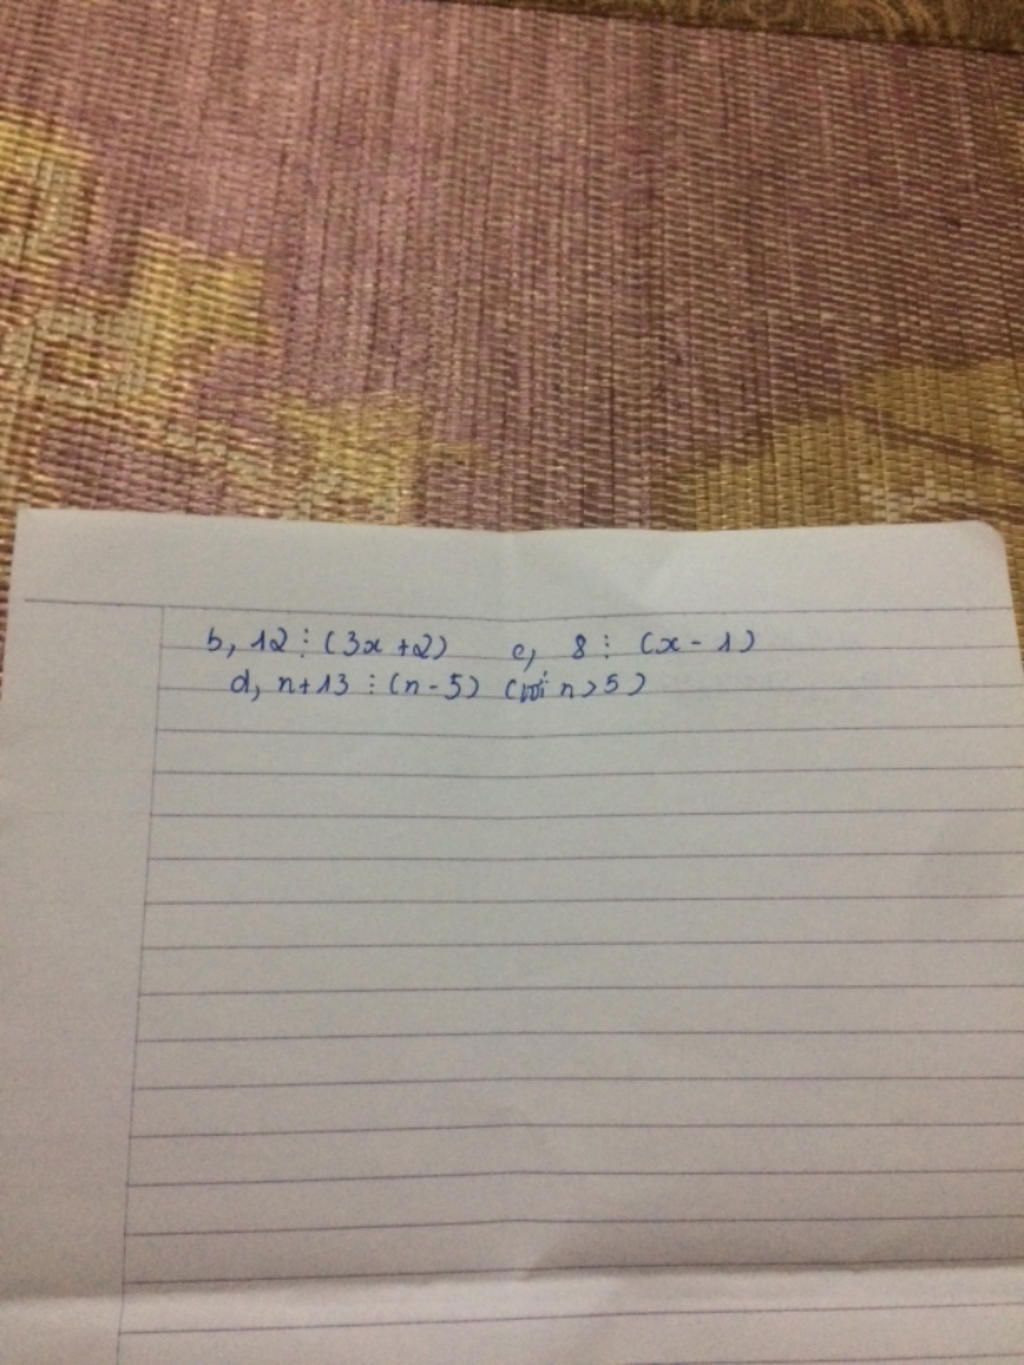 b, 12 ⋮ (3x +2) c, 8 ⋮ (x - 1)
d, n+13 ⋮ (n-5) (với n>5)